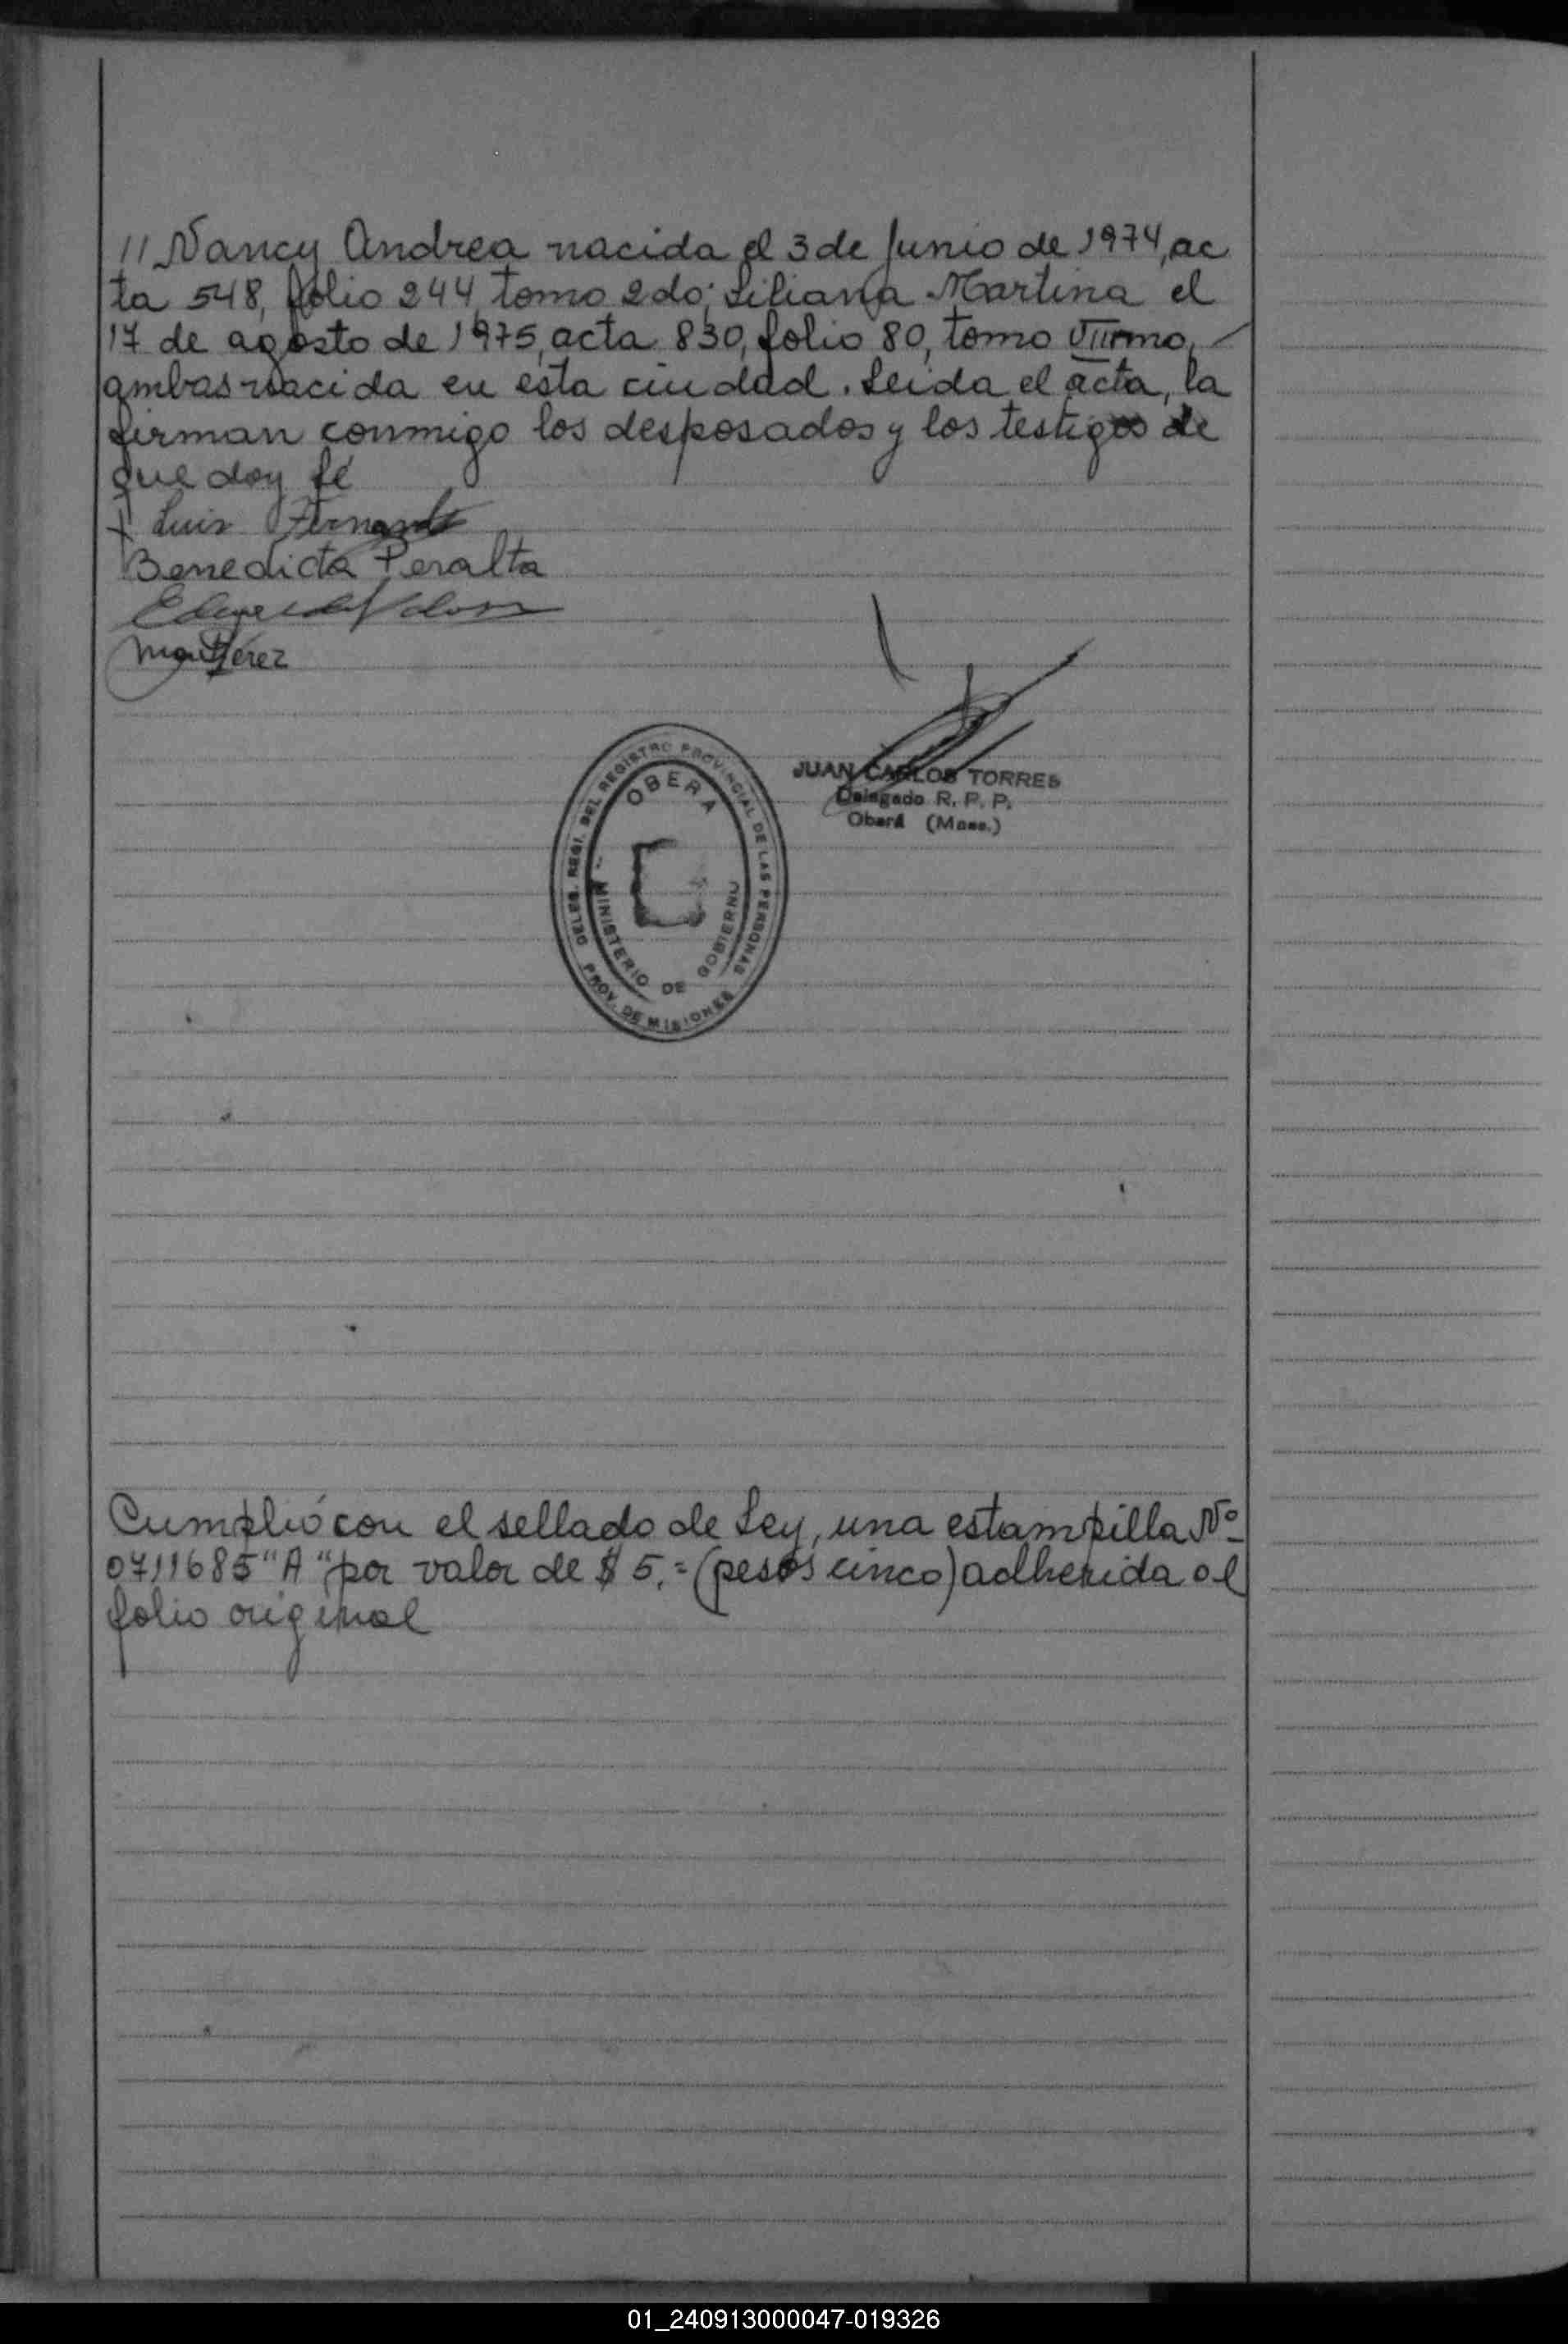 // Nancy Andrea nacida el 3 de Junio de 1974, ac
ta 548, folio 244, tomo 2do; Liliana Martina el
17 de agosto de 1975, acta 830, folio 80, tomo VIIrmo,
ambas nacida en esta ciudad. Leida el acta, la
firman conmigo los desposados y los testigos de
que doy fé
+ Luis Fernando
Benedicta Peralta
Pérez
JUAN CARLOS TORRES
Delegado R. P. P.
Oberá (Mnes.)
DELEG. REGI. DEL REGISTRO PROVINCIAL DE LAS PERSONAS
OBERA
MINISTERIO DE GOBIERNO
PROV. DE MISIONES
Cumplió con el sellado de Ley, una estampilla Nº
0711685 "A" por valor de $ 5.= (pesos cinco) adherida al
folio original
01_240913000047-019326